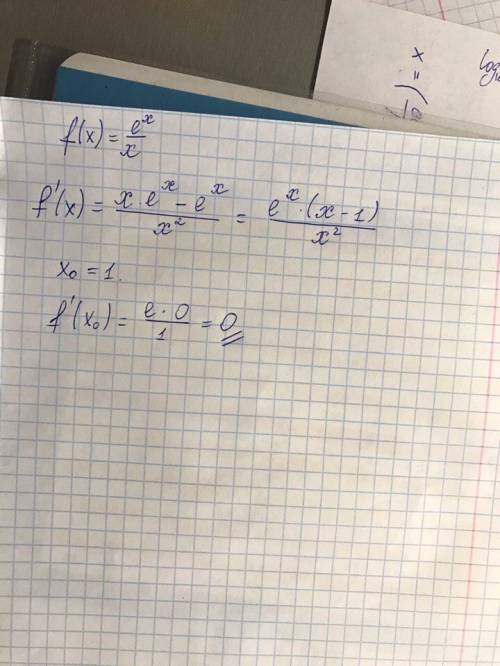 f(x) = e^x / x
f'(x) = (x · e^x − e^x) / x² = (e^x · (x − 1)) / x²
x₀ = 1.
f'(x₀) = (e · 0) / 1 = 0
x =
log